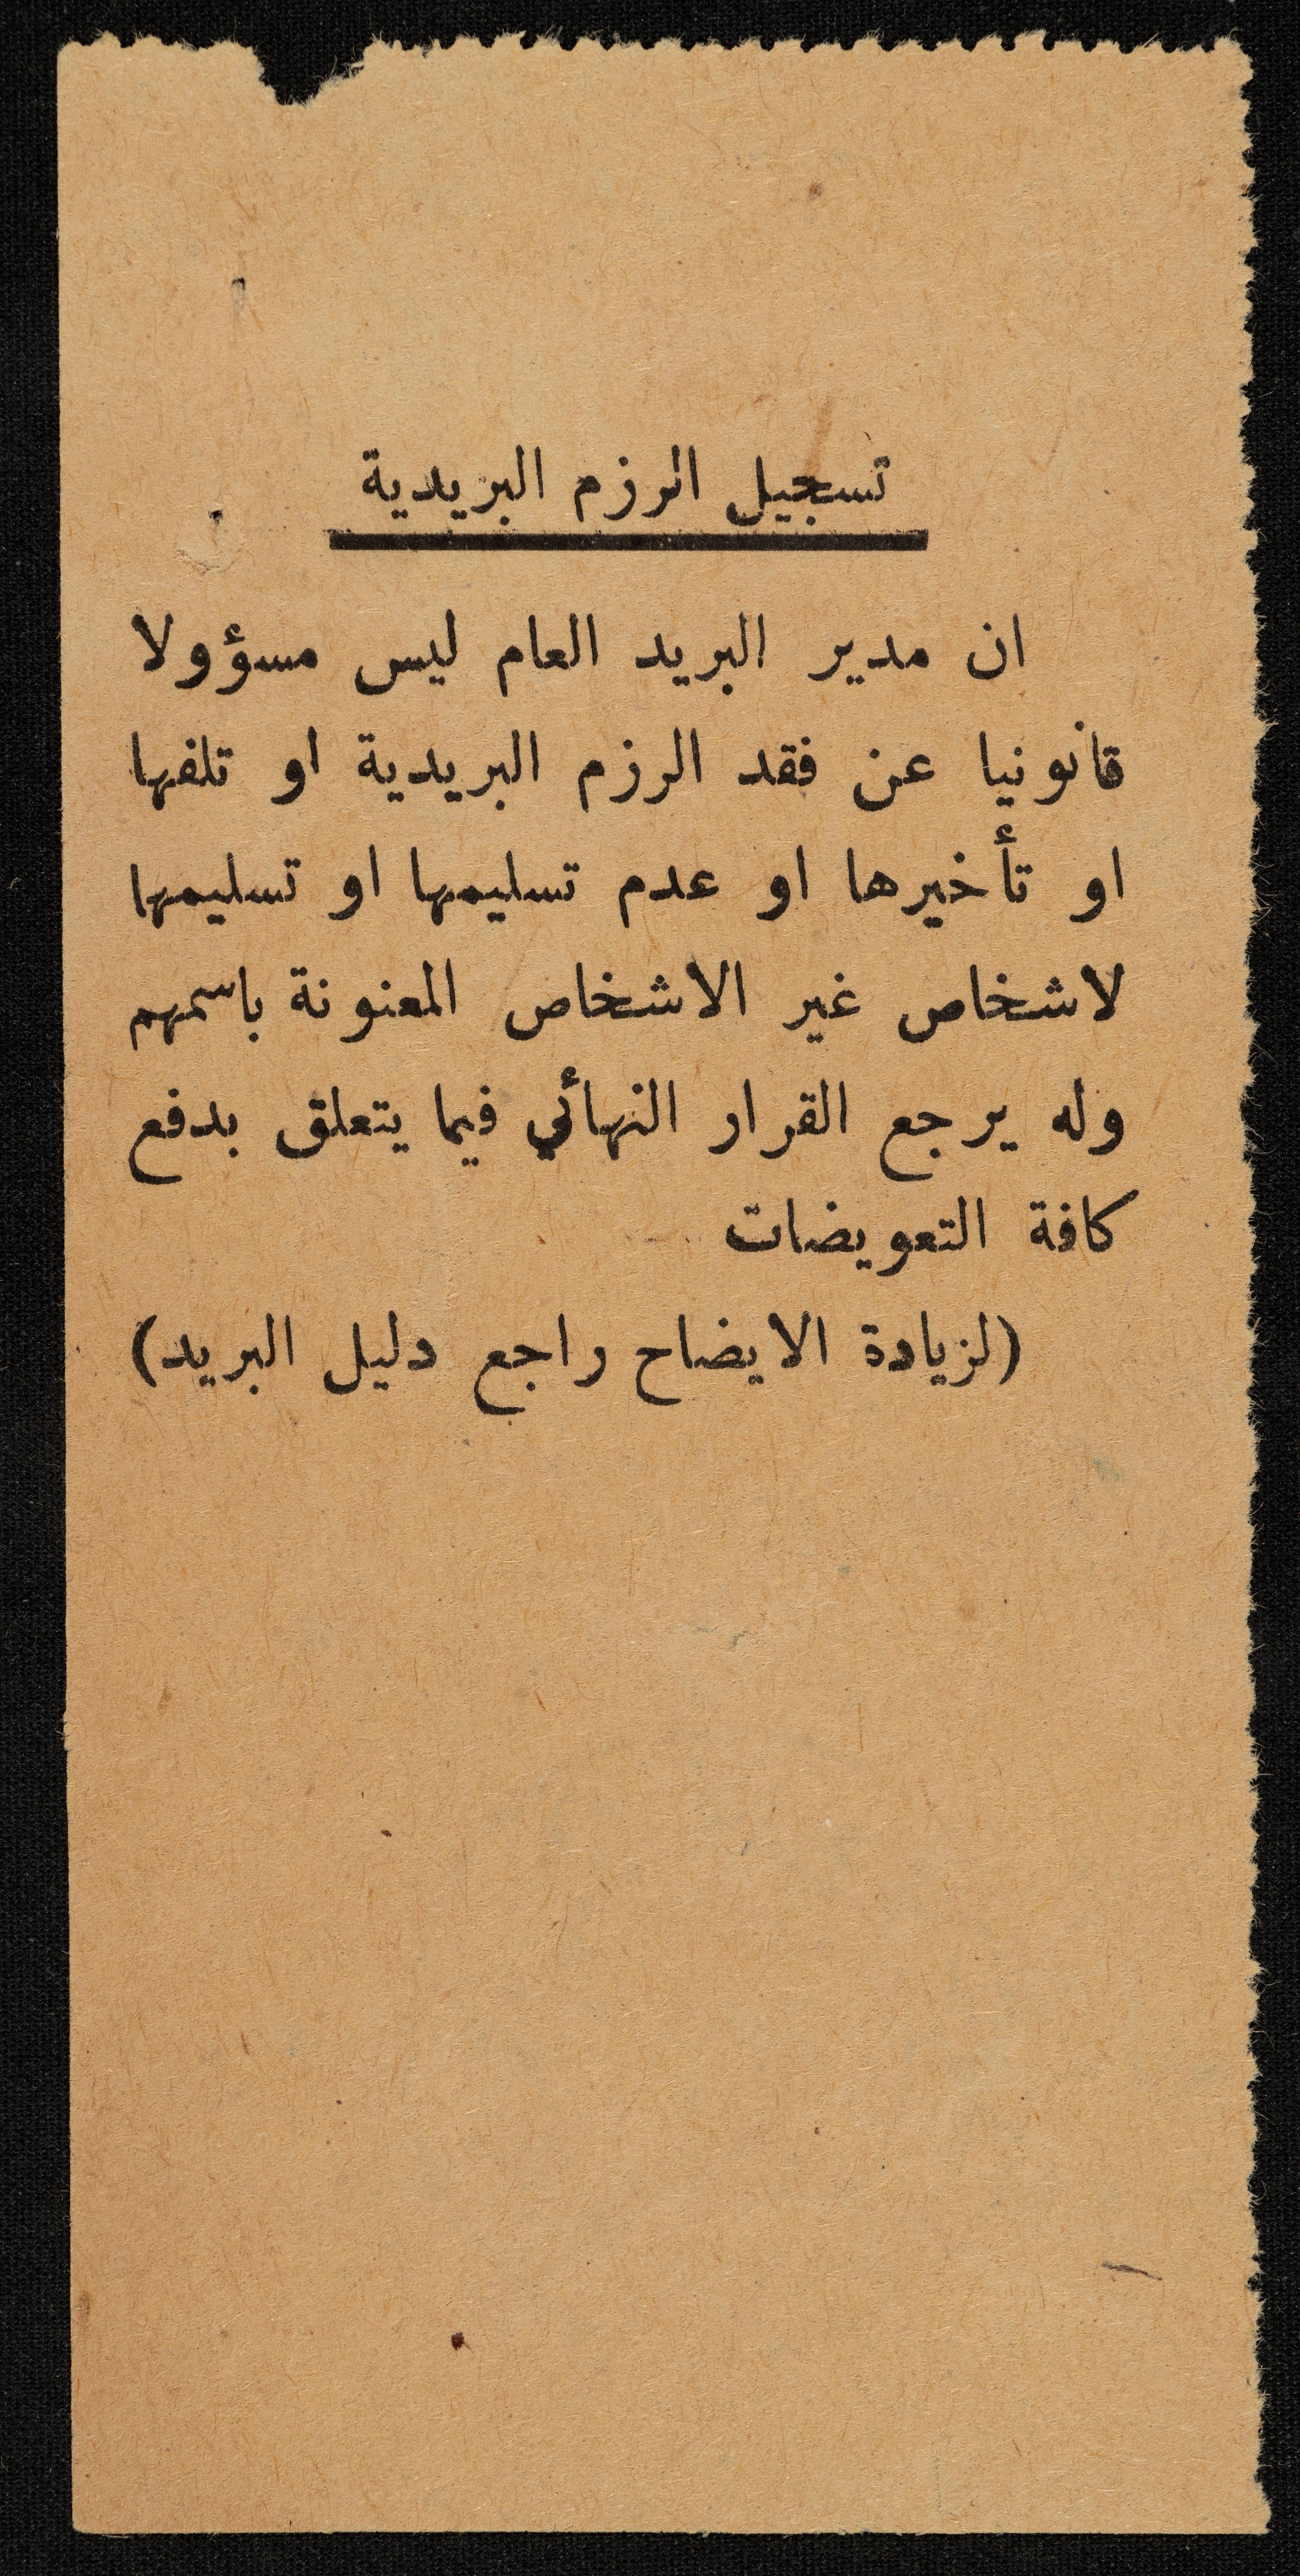 تسجيل الرزم البريدية
ان مدير البريد العام ليس مسؤولا
قانونيا عن فقد الرزم البريدية او تلفها
او تأخيرها او عدم تسليمها او تسليمها
لاشخاص غير الاشخاص المعنونة باسمهم
وله يرجع القرار النهائي فيما يتعلق بدفع
كافة التعويضات
(لزيادة الايضاح راجع دليل البريد)